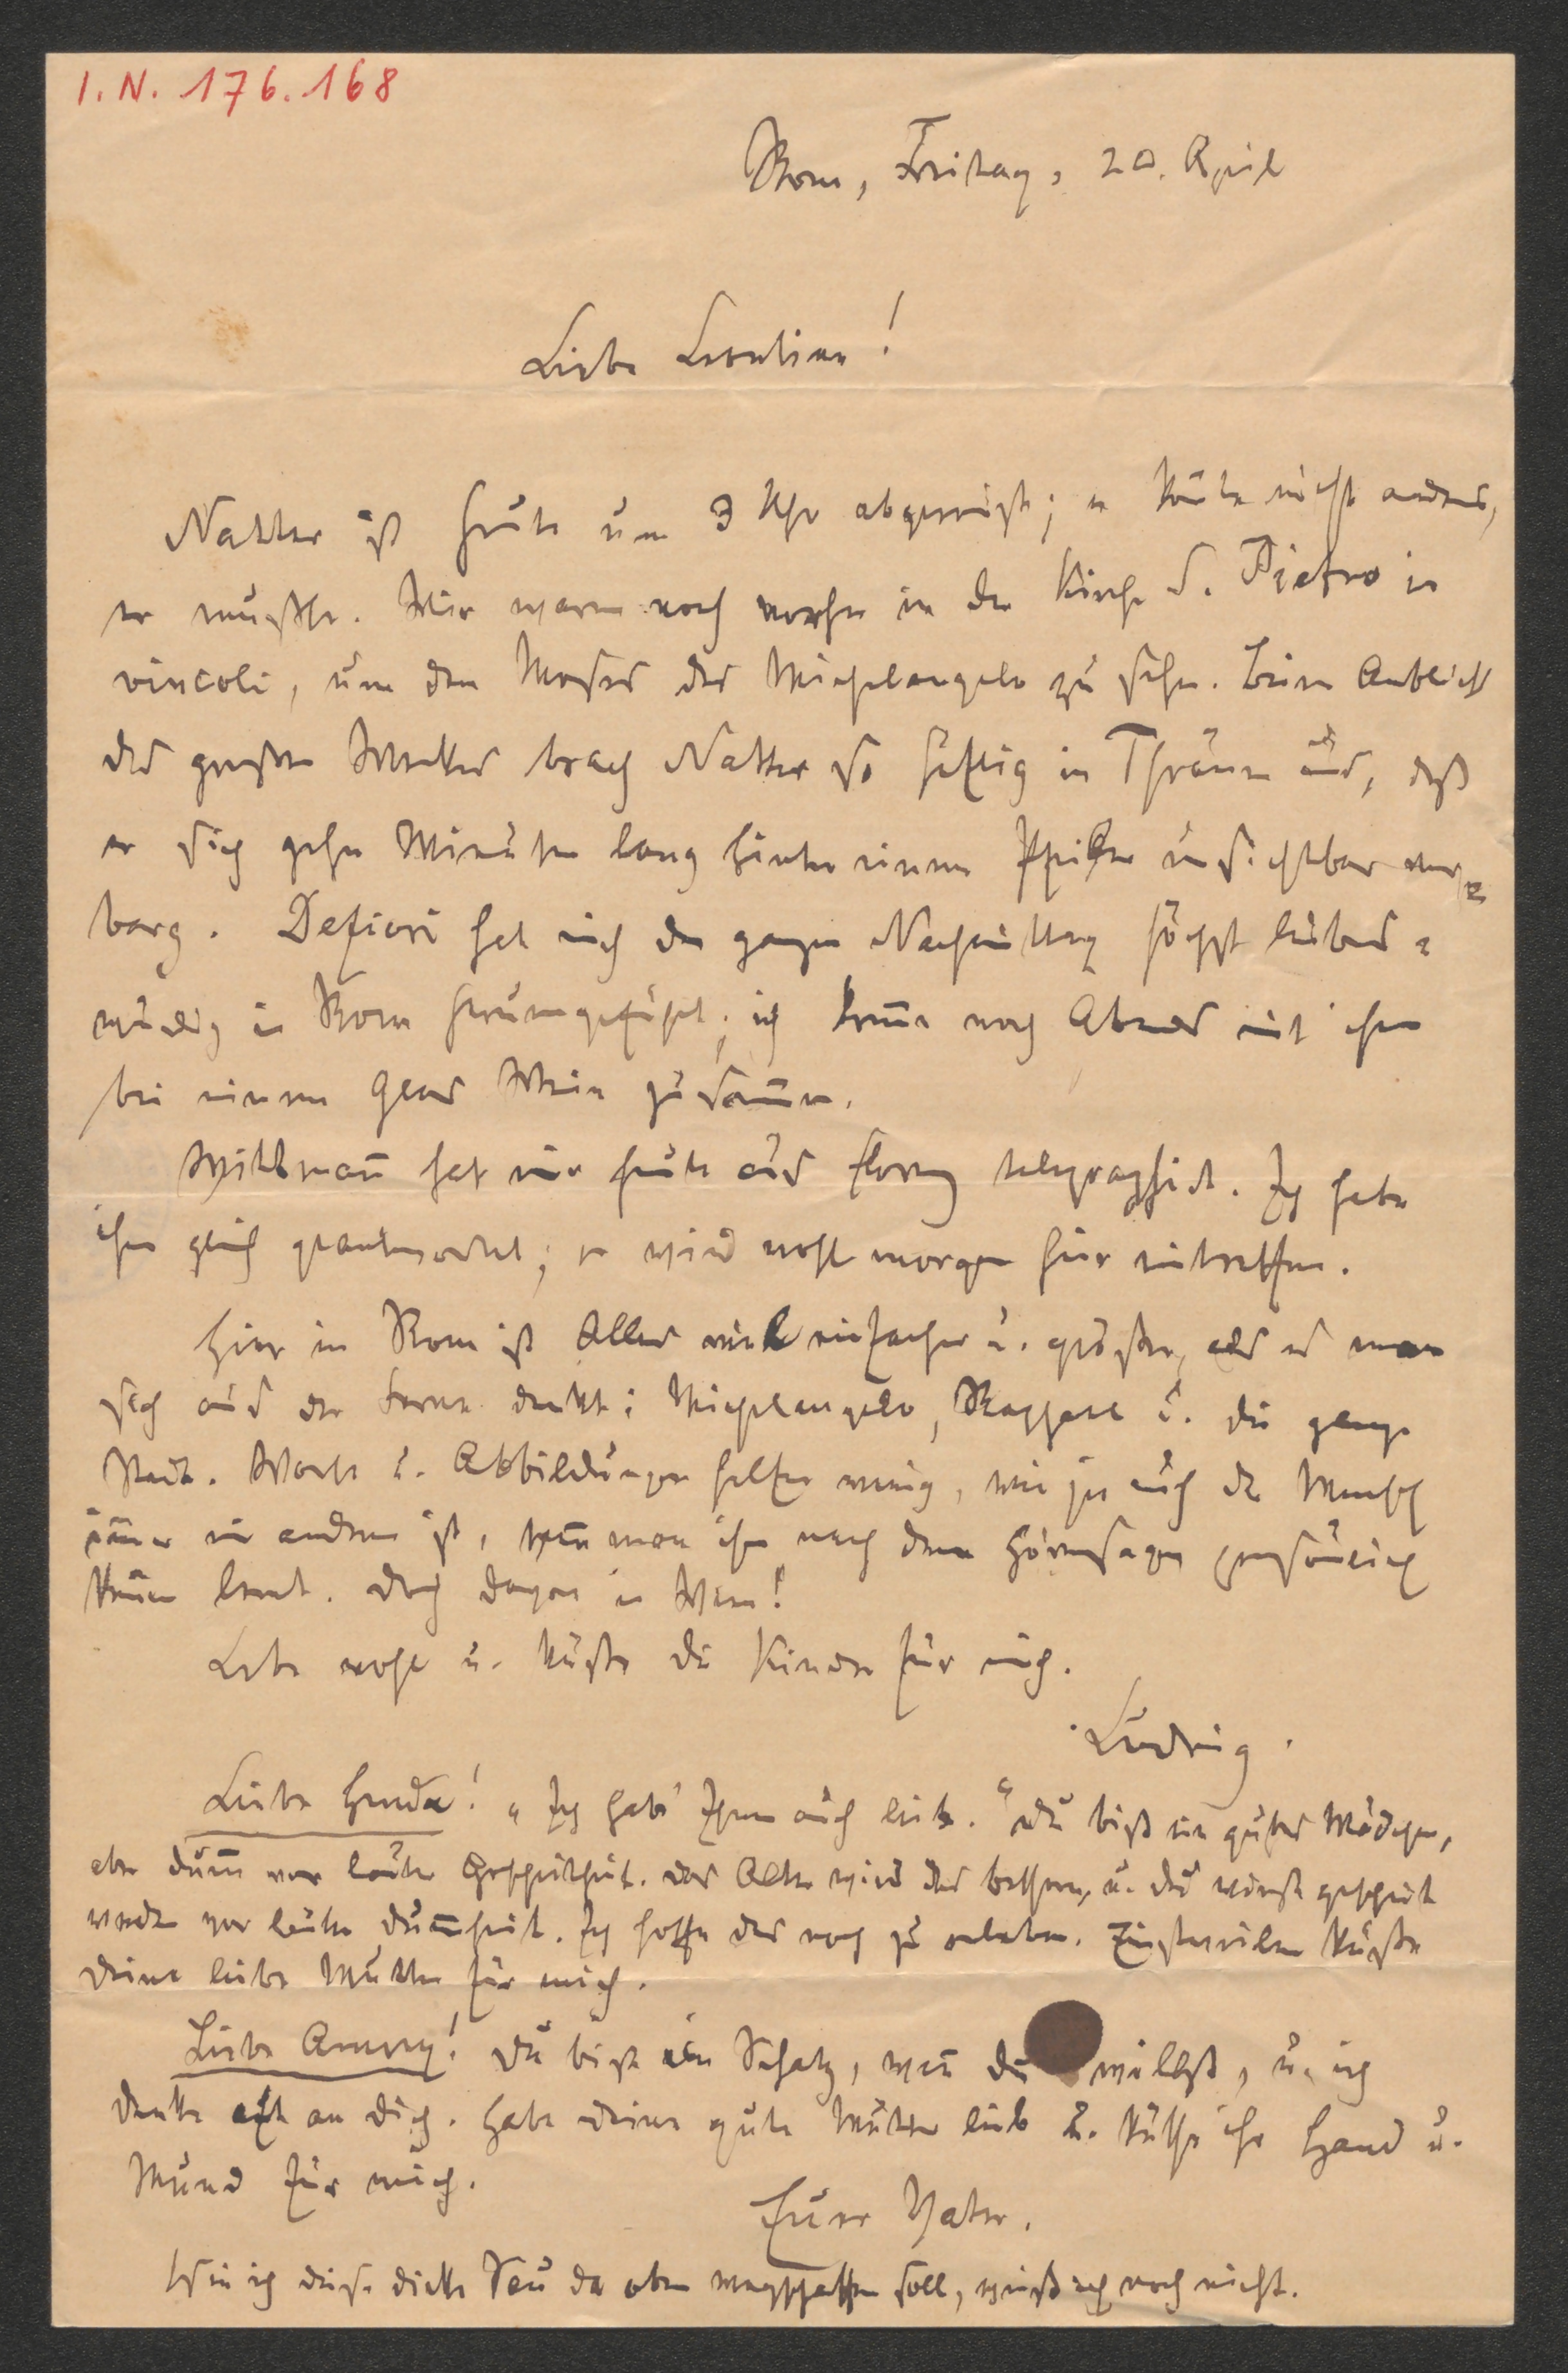 I. N. 176.168
Rom, Freitag, 20. April
Liebe Leontine!
Natter ist heute um 3 Uhr abgereist; er konnte nicht anders,
er mußte. Wir waren noch vorher in der Kirche S. Pietro in
vincoli, um den Moses des Michelangelo zu sehen. Beim Anblick
des großen Werkes brach Natter so heftig in Thränen aus, daß
er sich zehn Minuten lang hinter einem Pfeiler unsichtbar ver-
barg. Defiori hat mich den ganzen Nachmittag höchst liebens-
würdig in Rom herumgeführt; ich komme noch Abends mit ihm
bei einem Glas Wein zusammen.
Wittmann hat mir heute aus Florenz telegraphirt. Ich habe
ihm gleich geantwortet; er wird wohl morgen hier eintreffen.
Hier in Rom ist Alles viel einfacher u. größer, als es man
sich aus der Ferne denkt: Michelangelo, Raphael u. die ganze
Stadt. Worte u. Abbildungen helfen wenig, wie ja auch der Mensch
immer ein anderer ist, wenn man ihn nach dem Hörensagen persönlich
kennen lernt. Doch davon in Wien!
Lebe wohl u. küsse die Kinder für mich.
Ludwig.
Liebe Gerda! „Ich hab' Ihnen auch lieb.“ Du bist ein gutes Mädchen,
aber dumm vor lauter Gescheitheit. Das Alter wird das bessern, u. du wirst gescheit
werden vor lauter Dummheit. Ich hoffe das noch zu erleben. Einstweilen küsse
deine liebe Mutter für mich.
Liebe Anny! Du bist ein Schatz, wenn du willst, u. ich
denke oft an dich. Habe deine gute Mutter lieb u. küsse ihr Hand u.
Mund für mich.
Euer Vater.
Wie ich diese dicke Sau da oben wegschaffen soll, weiß ich noch nicht.